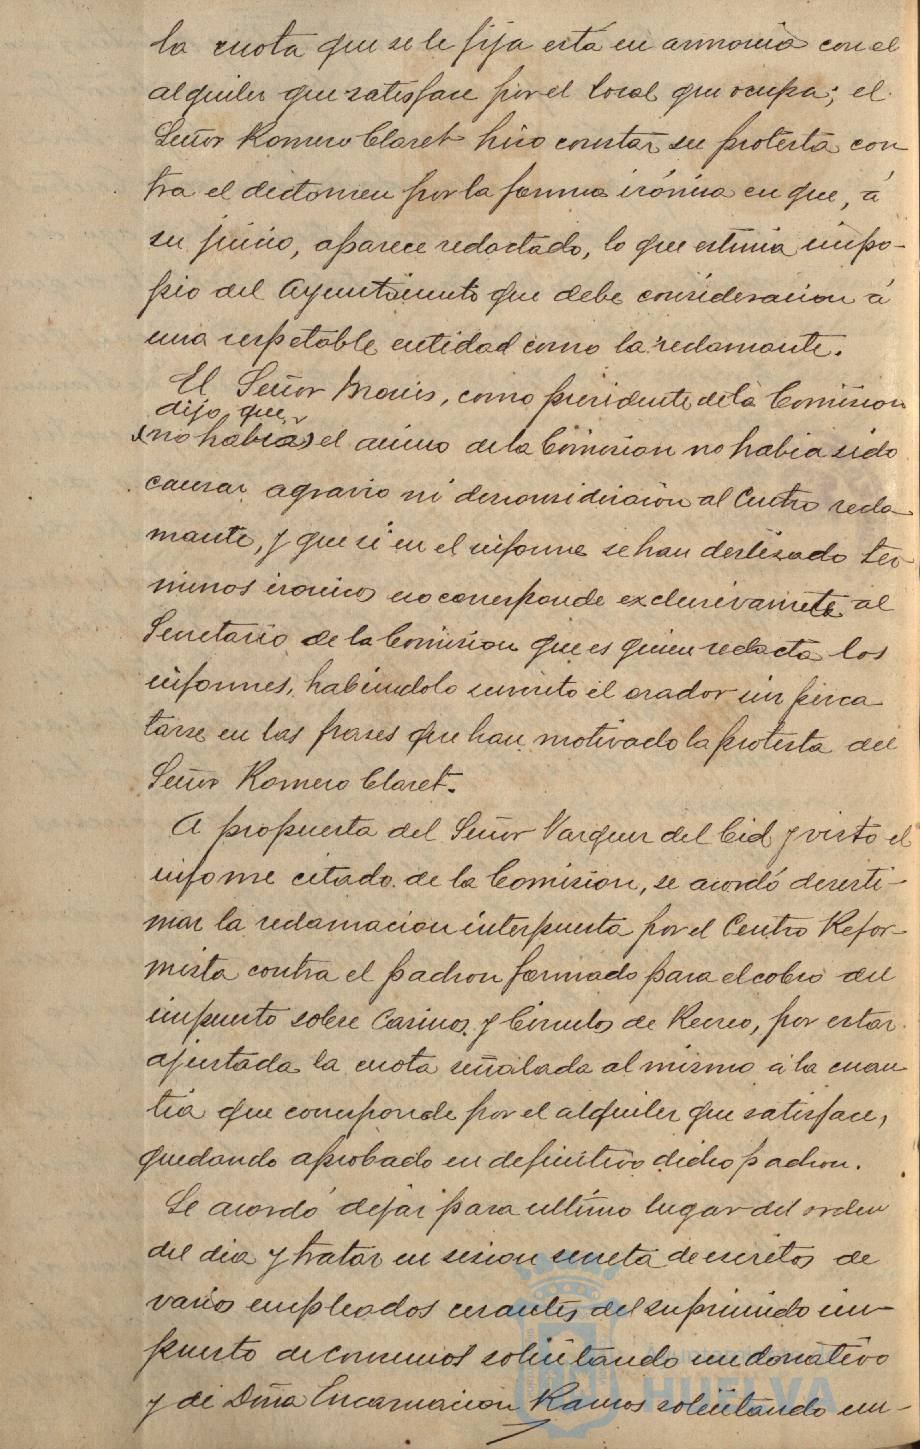 la cuota que se le fija está en armonia con el
alquiler que satisface por el local que ocupa; el
Señor Romero Claret hizo constar su protesta con
tra el dictamen por la forma irónica en que, á
su juicio, aparece redactado, lo que estima impro-
pio del Ayuntamiento que debe consideracion á
una respetable entidad como la reclamante.
El Señor Mories, como presidente de la Comision
dijo que
(no habia) el animo de la Comision no habia sido
causar agravio ni desconsideración al Centro recla
mante, y que si en el informe se han deslizado ter
minos ironicos eso corresponde exclusivamete al
Secretario de la Comision que es quien redacta los
informes, habiendolo suscrito el orador sin perca
tarse en las frases que han motivado la protesta del
Señor Romero Claret.
A propuesta del Señor Vazquez del Cid y visto el
informe citado de la Comision, se acordó desesti-
mar la reclamacion interpuesta por el Centro Refor-
mista contra el padron formado para el cobro del
impuesto sobre Casinos y Circulos de Recreo, por estar
ajustada la cuota señalada al mismo á la cuan
tia que corresponde por el alquiler que satisface,
quedando aprobado en definitivo dicho padron.
Se acordó dejar para ultimo lugar del orden
del dia y tratar en sesion secreta de escritos de
varios empleados cesantes del suprimido im-
puesto de consumos solicitando un donativo
y de Dña Encarnacion Ramos solicitando un-
Ayuntamiento de
HUELVA